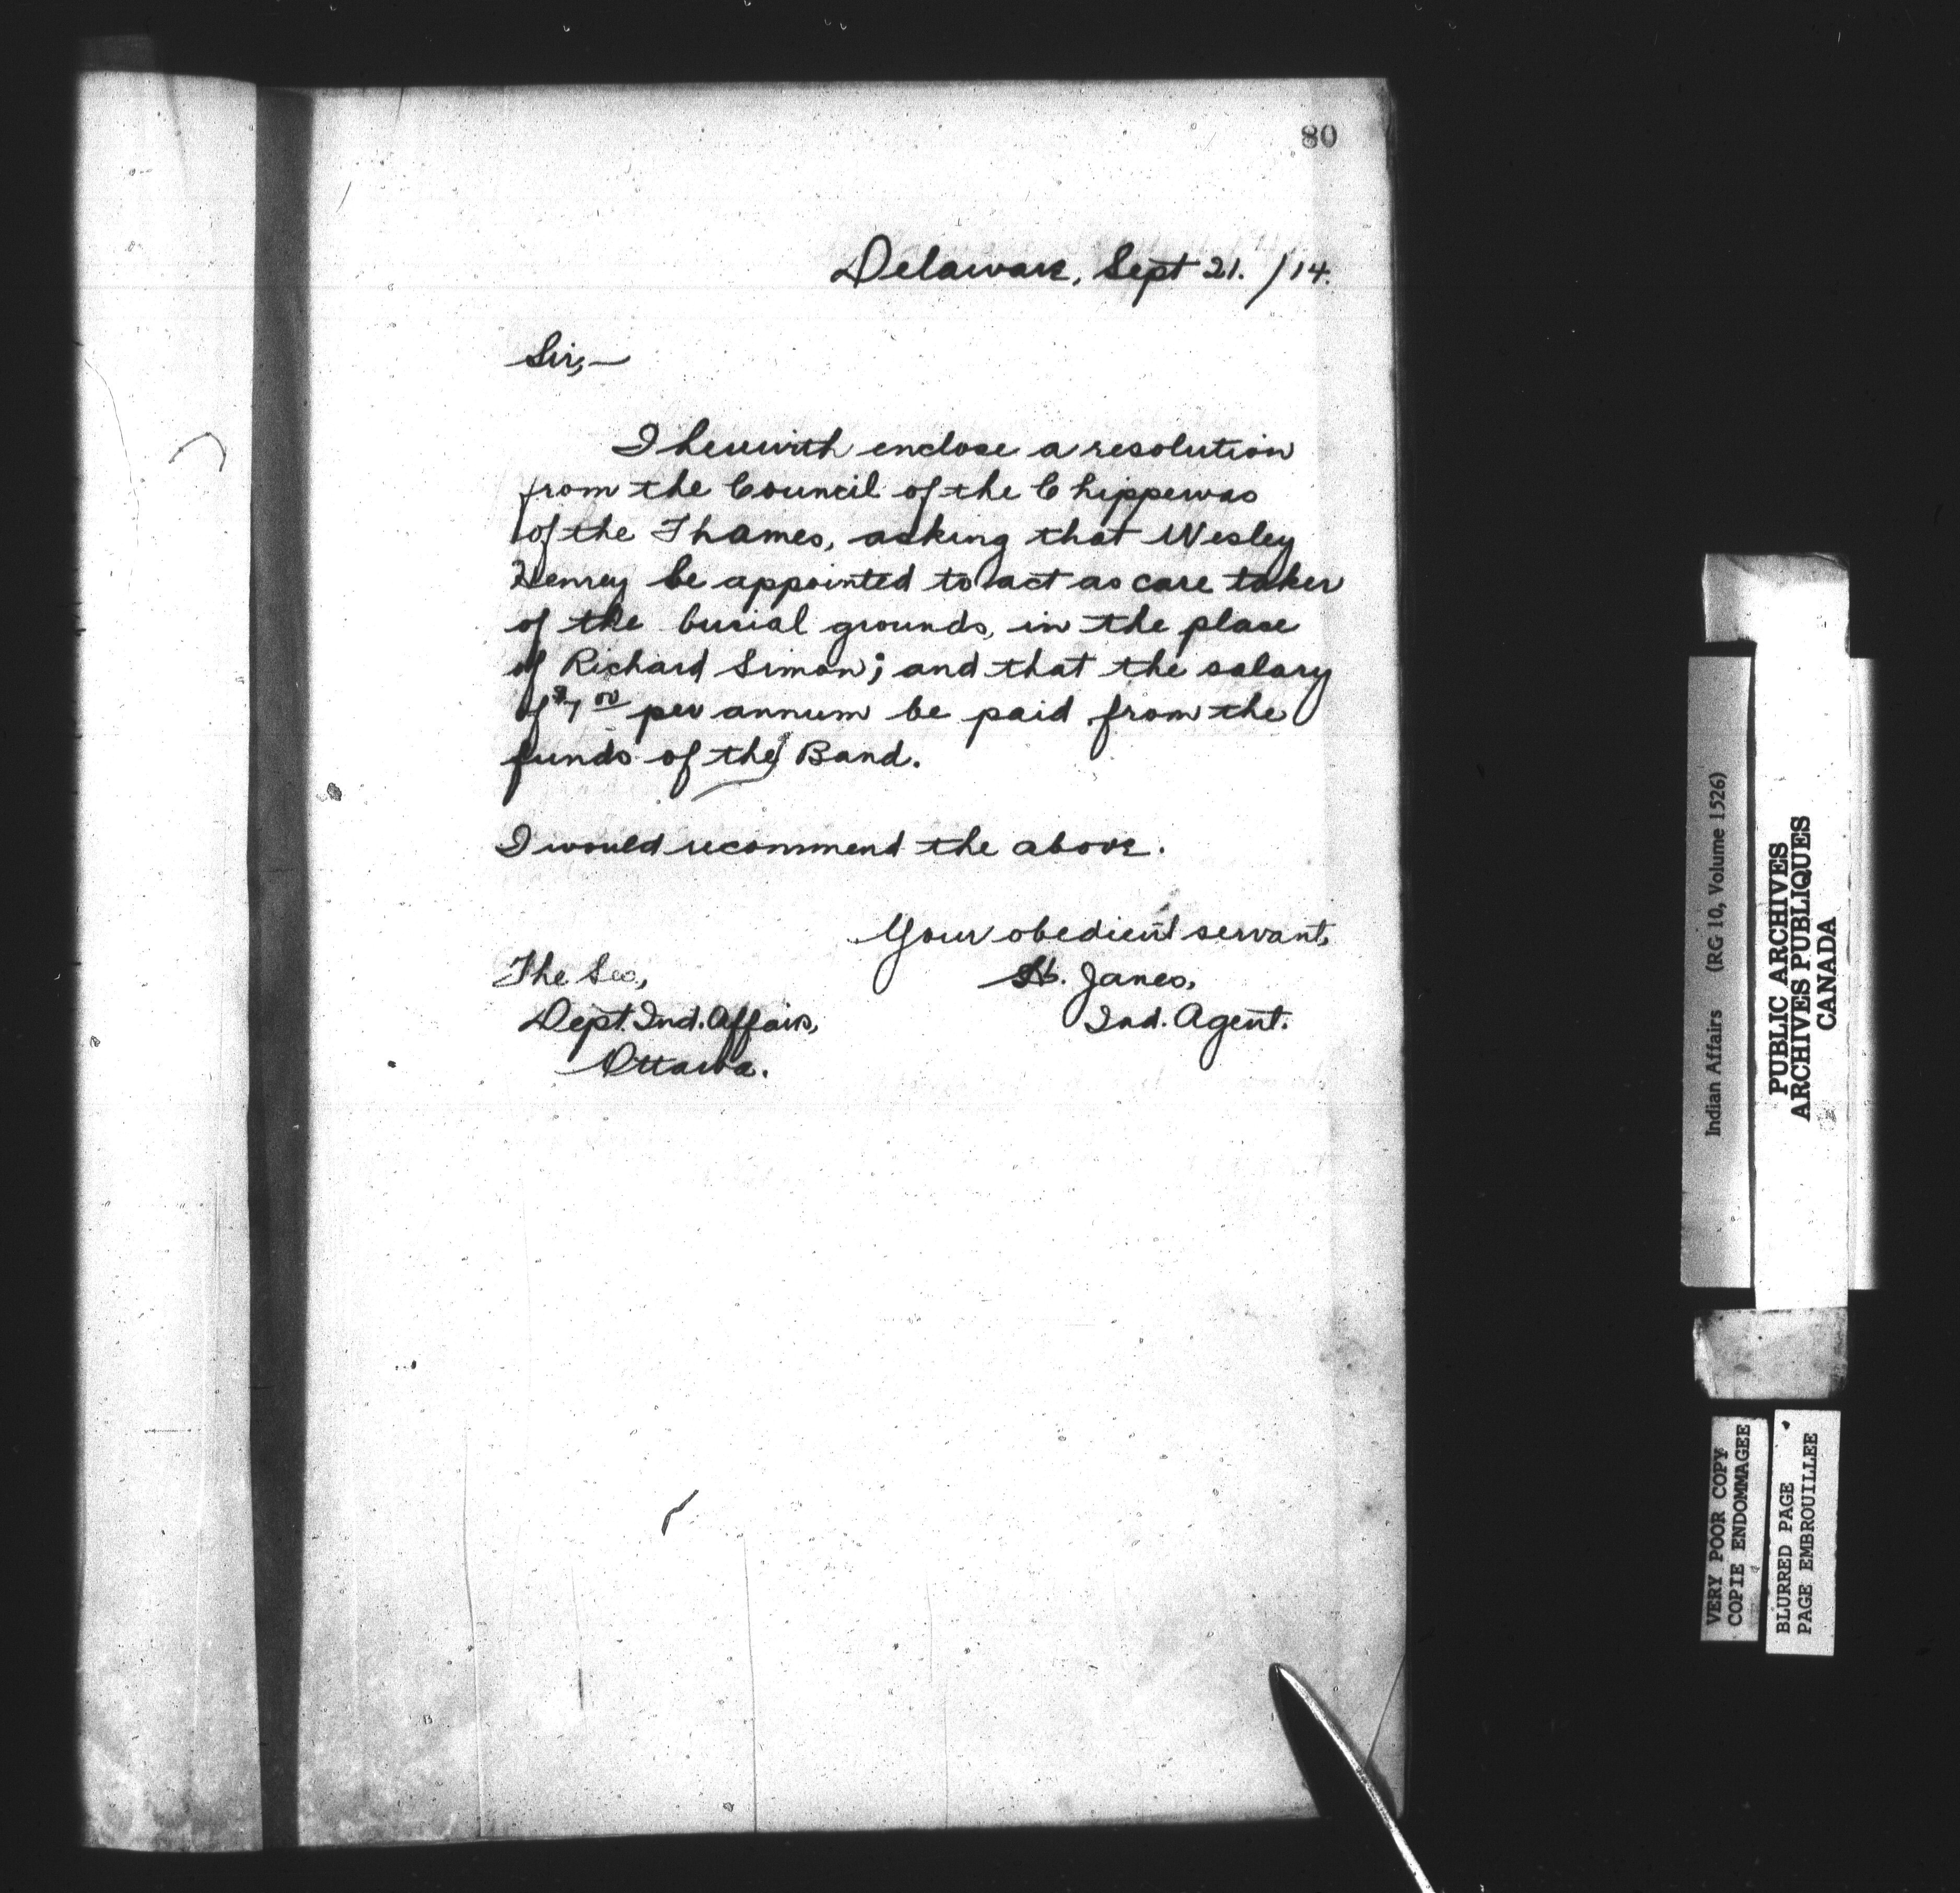 80
Delaware, Sept 21. /14.
Sir,—
I herewith enclose a resolution
from the Council of the Chippewas
of the Thames, asking that Wesley
Henrey be appointed to act as care taker
of the burial grounds, in the place
of Richard Simon; and that the salary
of $7.00 per annum be paid from the
funds of the Band.
I would recommend the above.
Your obedient servant,
The Sec,
S. Janes,
Dept. Ind. Affairs,
Ind. Agent.
Ottawa.
Indian Affairs (RG 10, Volume 1526)
PUBLIC ARCHIVES
ARCHIVES PUBLIQUES
CANADA
VERY POOR COPY
COPIE ENDOMMAGEE
BLURRED PAGE
PAGE EMBROUILLEE